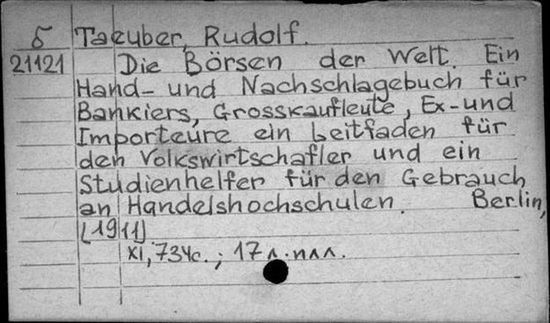 5 Taeuber, Rudolf.
21121 Die Börsen der Welt. Ein
Hand- und Nachschlagebuch für
Bankiers, Grosskaufleute, Ex- und
Importeure ein Leitfaden für
den Volkswirtschafler und ein
Studienhelfer für den Gebrauch
an Handelshochschulen. Berlin,
[1911]
XI, 734c.; 17 л. илл.